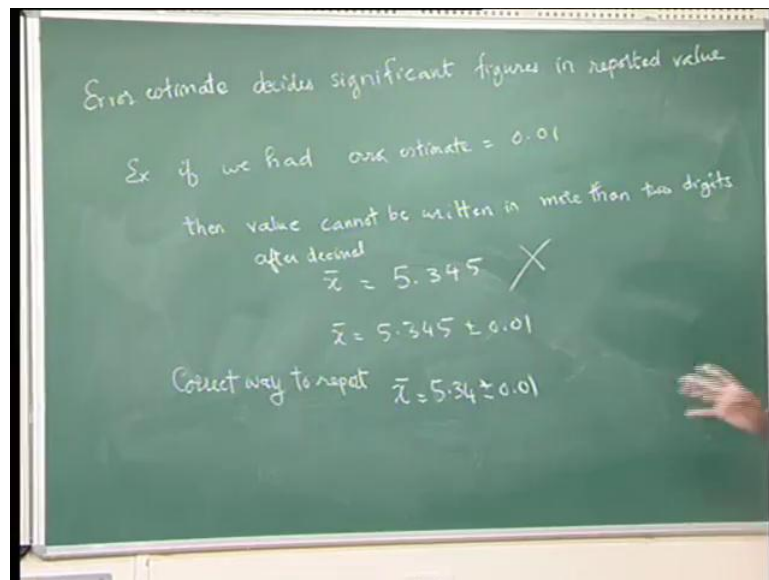 Error estimate decides significant figures in reported value
Ex if we had error estimate = 0.01
then value cannot be written in more than two digits
after decimal
x̄ = 5.345 X
x̄ = 5.345 ± 0.01
Correct way to report x̄ = 5.34 ± 0.01